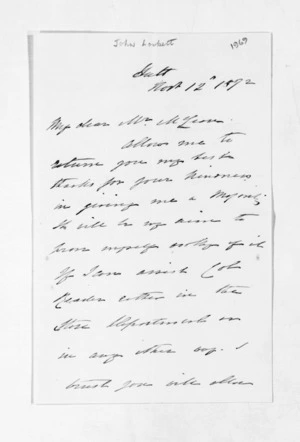 John Lockett
1969
Hutt
Novr 12th 1872
My dear Mr. McLean
Allow me to
return you my best
thanks for your kindness
in giving me a Majority
It will be my aim to
prove myself worthy of it
If I can assist Col
Reader either in the
Store Department or
in any other way. I
trust you will allow